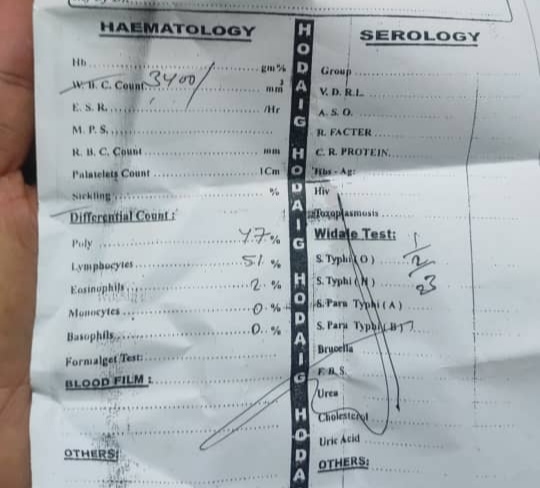 HAEMATOLOGY
Hb ........ gm%
W. B. C. Count: 3400/ mm3
E. S. R. ........ /Hr
M. P. S. ........
R. B. C. Count ........ mm
Palatelets Count ........ 1Cm
Sickling ........ %
Differential Count :
Poly ........ 47 %
Lymphocytes ........ 51 %
Eosinophils ........ 2 %
Monocytes ........ 0 %
Basophils ........ 0 %
Formalget Test: ........
BLOOD FILM : ........
OTHERS:
HODAIG HODAIG HODAIG HODA
SEROLOGY
Group ........
V. D. R.L. ........
A. S. O. ........
R. FACTER ........
C. R. PROTEIN. ........
Hbs - Ag:
Hiv
Toxoplasmosis ........
Widale Test:
S. Typhi ( O ) ........
S. Typhi ( H ) ........
S. Para Typhi ( A ) ........
S. Para Typhi ( B ) ........
Brucella ........
F. B. S. ........
Urea ........
Cholesterol ........
Uric Acid ........
OTHERS: ........